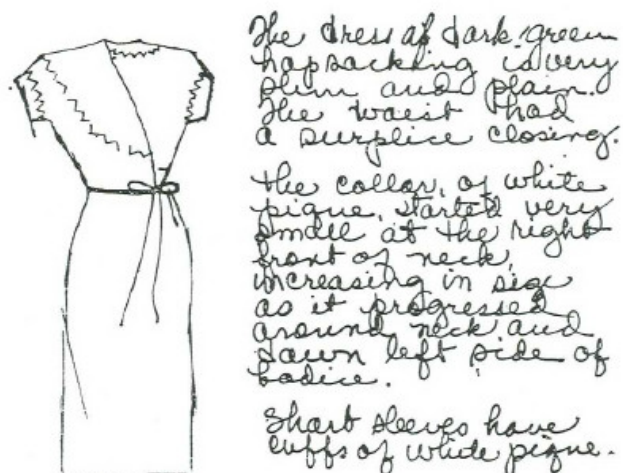 The dress of dark green
hopsacking is very
slim and plain.
The waist had
a surplice closing.
The collar, of white
pique, started very
small at the right
front of neck,
increasing in size
as it progressed
around neck and
down left side of
bodice.
Short sleeves have
cuffs of white pique.